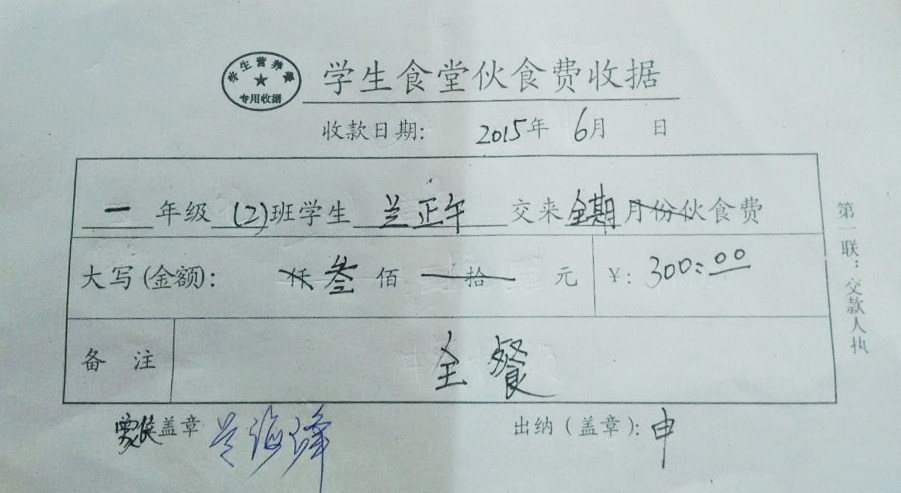 学生营养餐
专用收据
学生食堂伙食费收据
收款日期: 2015年 6月 日
一年级 (2)班学生 兰正午 交来全期月份伙食费
大写(金额): 仟叁佰 拾 元 ¥: 300:00
备注 全餐
盖章 兰海锋 出纳(盖章): 申
第一联:交款人执